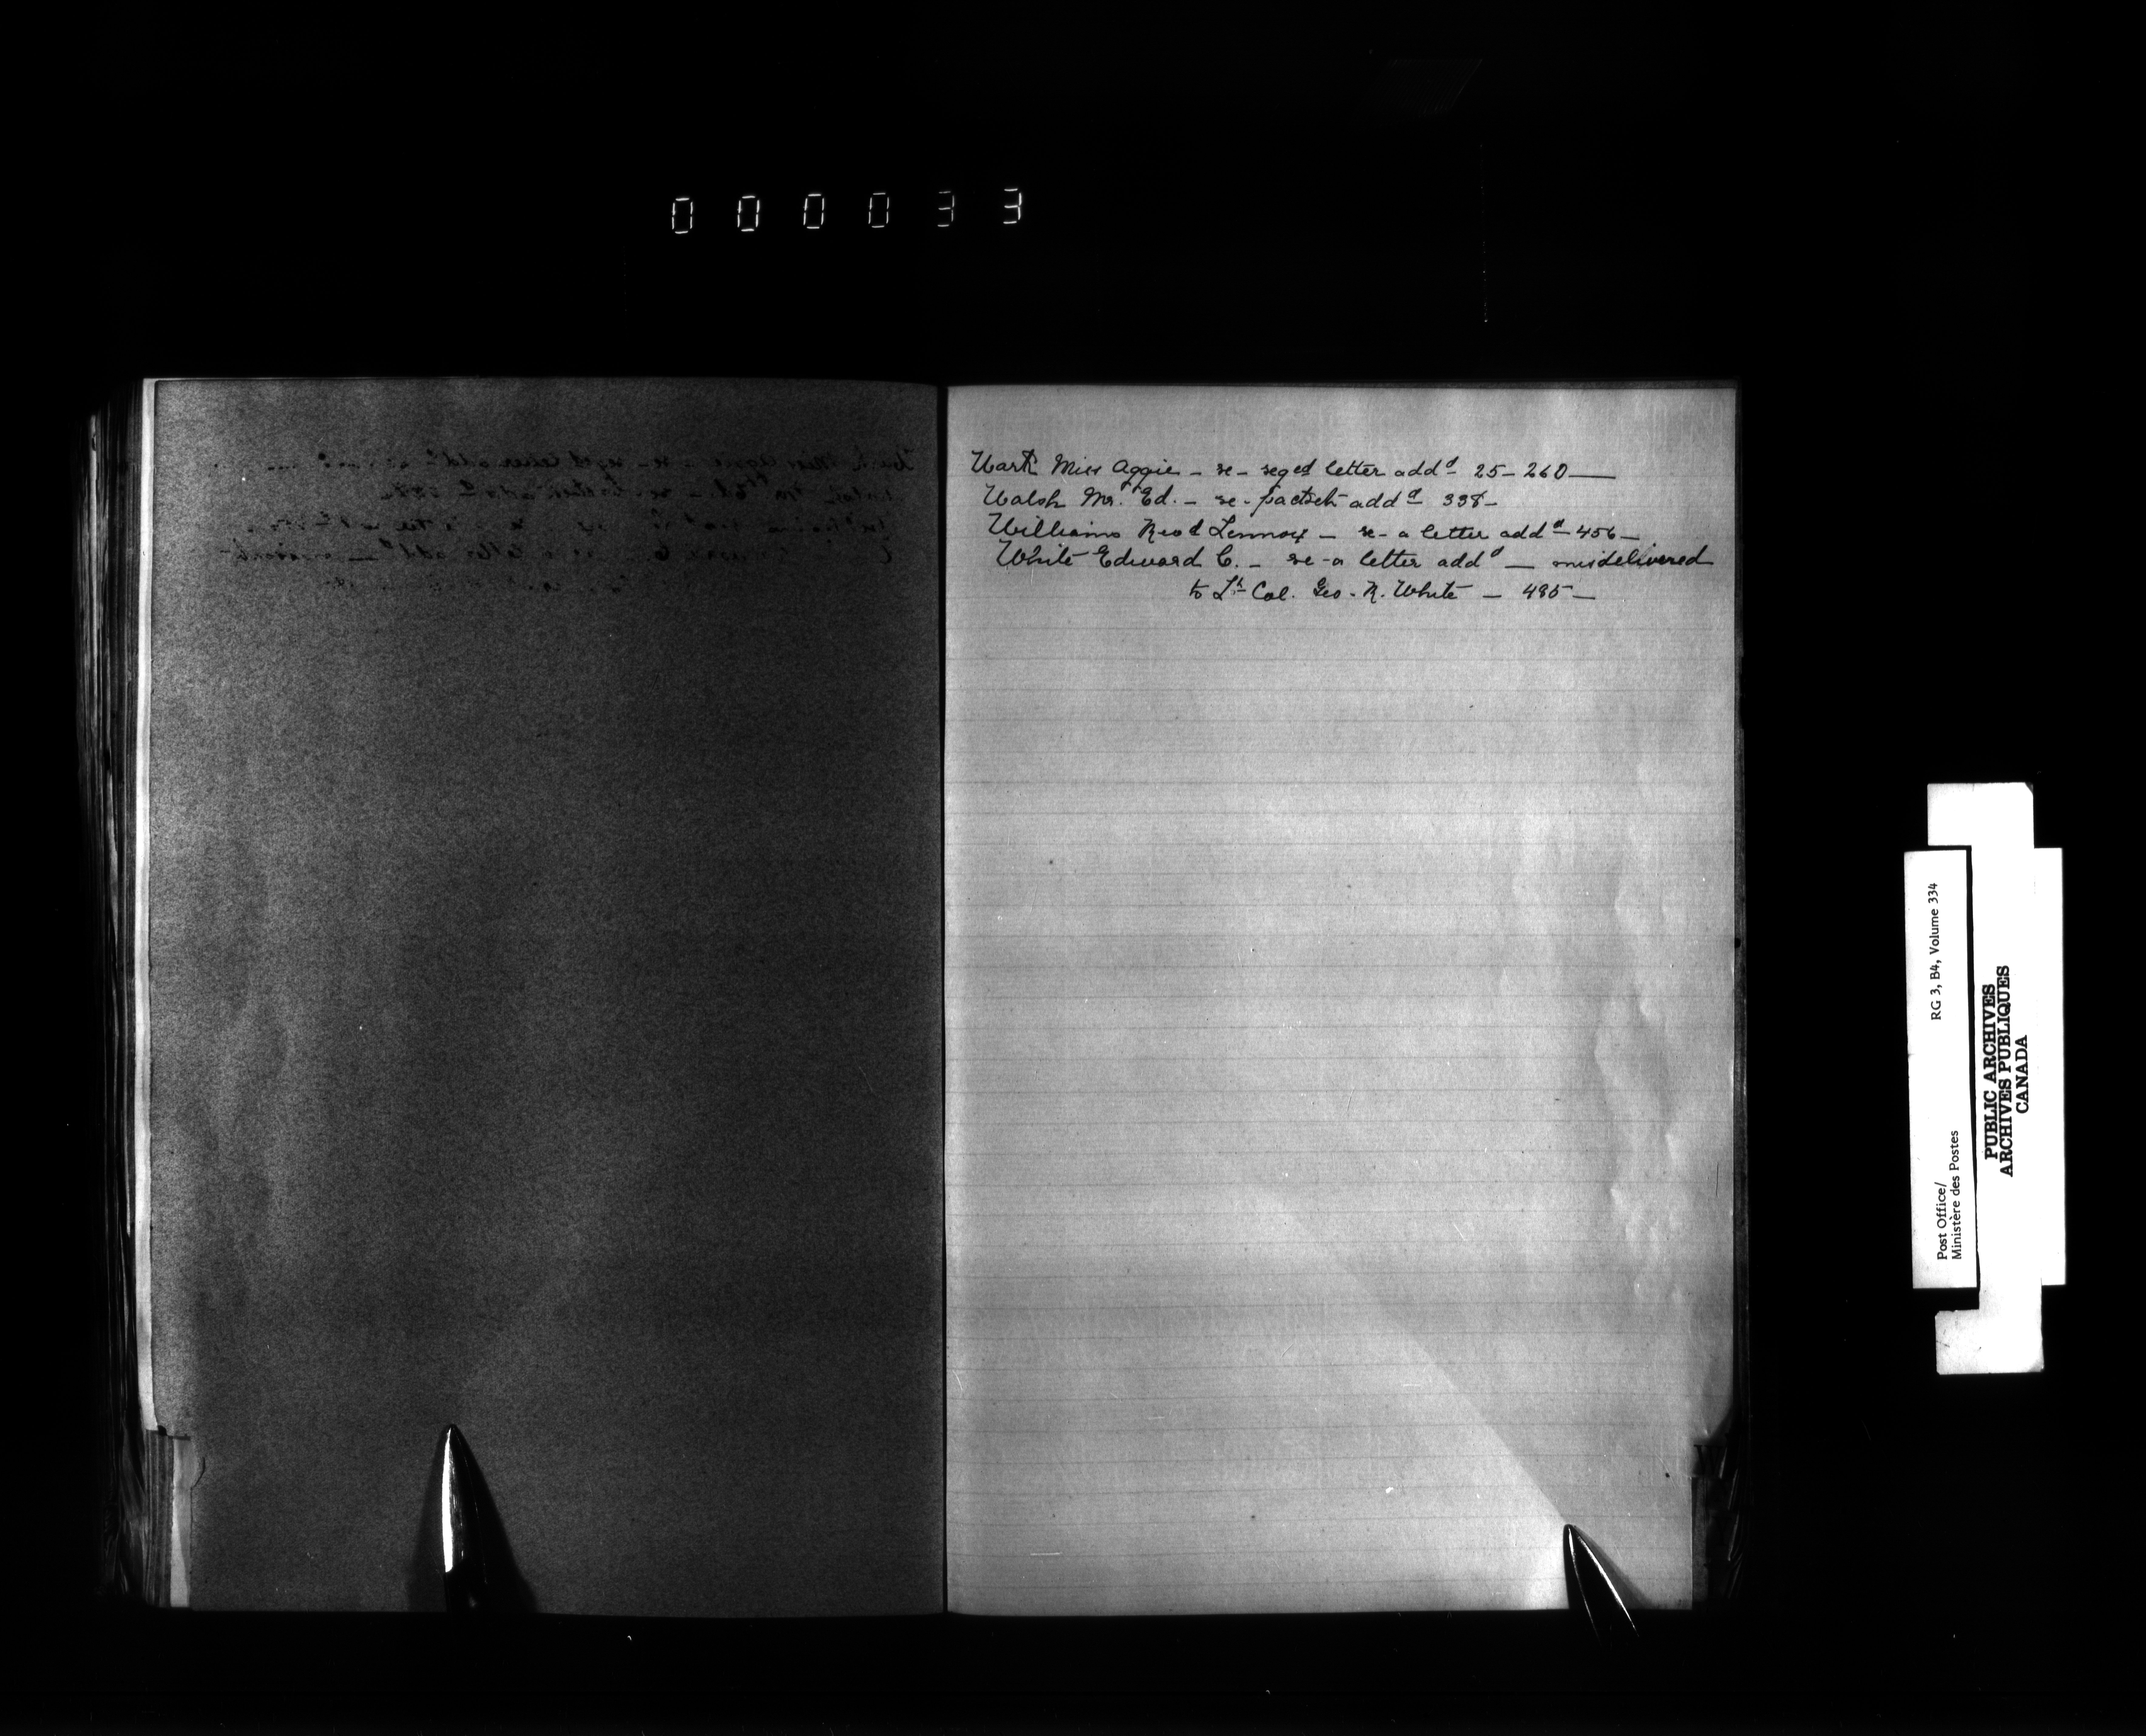 000033
Wark Miss Aggie - re - reged letter addd 25 - 260 —
Walsh Mr. Ed. - re - packet addd 338 -
Williams Revd Lennox - re - a letter addd - 456 -
White Edward C. - re - a letter addd — misdelivered
to Lt Col. Geo. R. White - 485 -
Post Office/
Ministère des Postes
RG 3, B4, Volume 334
PUBLIC ARCHIVES
ARCHIVES PUBLIQUES
CANADA